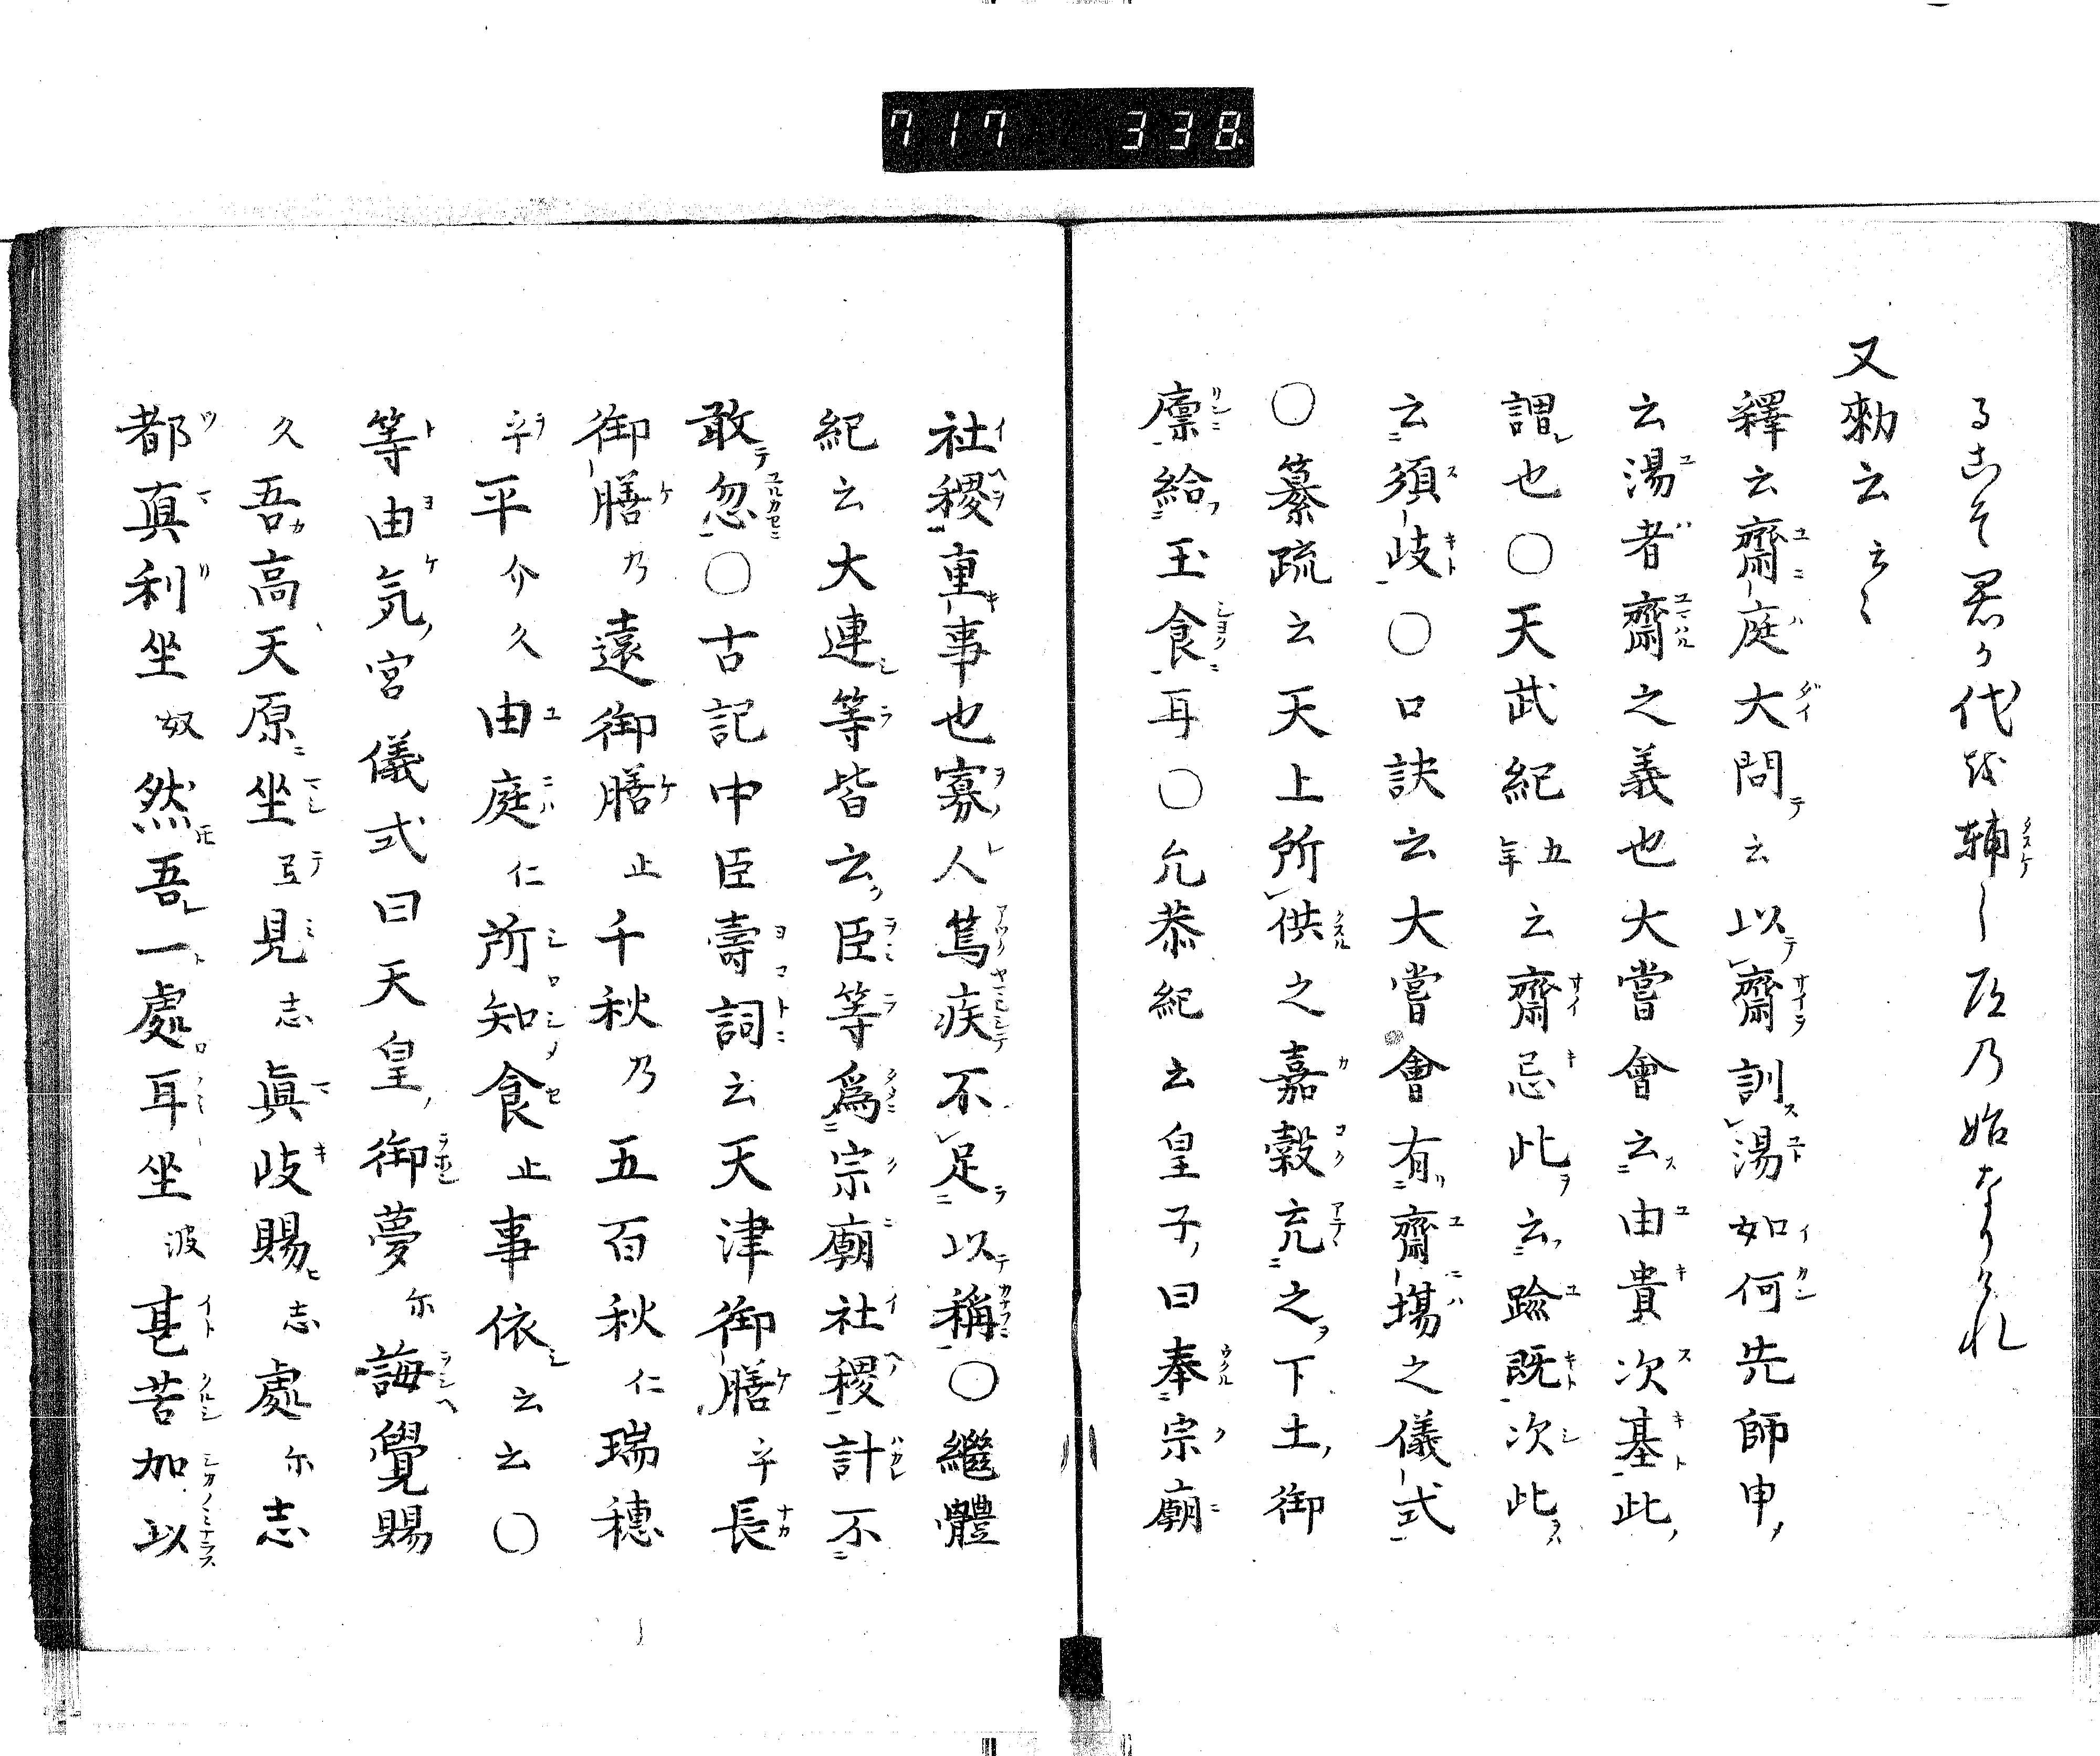 717 338
るこそ君か代を輔し臣乃始なりけれ
又勅云云〻
釋云齋庭大問云以齋訓湯如何先師申
云湯者齋之義也大嘗會云由貴次基此
謂也〇天武紀五年云齋忌此云踰既次此
云須岐〇口訣云大嘗會有齋場之儀式
〇纂疏云天上所供之嘉穀充之下土御
廩給玉食耳〇允恭紀云皇子曰奉宗廟
社稷重事也寡人篤疾不足以稱〇繼體
紀云大連等皆云臣等爲宗廟社稷計不
敢忽〇古記中臣壽詞云天津御膳乎長
御膳乃遠御膳止千秋乃五百秋仁瑞穗
乎平介久由庭仁所知食止事依云云〇
等由気宮儀式曰天皇御夢尓誨覺賜
久吾高天原坐弖見志眞岐賜志處尓志
都真利坐奴然吾一處耳坐波甚苦加以